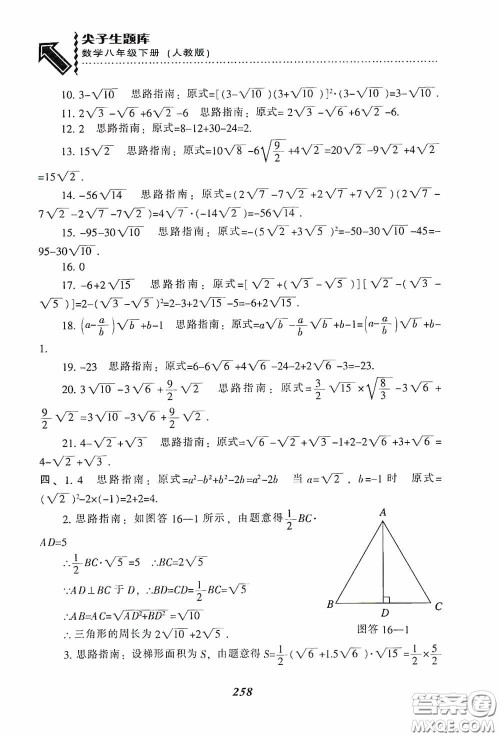 尖子生题库
数学八年级下册(人教版)
10. 3-√10 思路指南:原式=[(3-√10)(3+√10)]²·(3-√10)=3-√10.
11. 2√3-√6+6√2-6 思路指南:原式=2√3-√6+6√2-6.
12. 2 思路指南:原式=8-12+30-24=2.
13. 15√2 思路指南:原式=10√8-6√(9/2)+4√2=20√2-9√2+4√2
=15√2.
14. -56√14 思路指南:原式=(2√7-7√2+2√7+7√2)(2√7-
7√2-2√7-7√2)=4√7·(-14√2)=-56√14.
15. -95-30√10 思路指南:原式=-(5√2+3√5)²=-50-30√10-45=-
95-30√10.
16. 0
17. -6+2√15 思路指南:原式=[√2+(√3-√5)][√2-(√3-
√5)]=2-(√3-√5)²=2-3+2√15-5=-6+2√15.
18. (a-a/b)√b+b-1 思路指南:原式=a√b-a/b√b+b-1=(a-a/b)√b+b-
1.
19. -23 思路指南:原式=6-6√6+4√6-24-2+2√6-3=-23.
20. 3√10-3√6+9/2√2 思路指南:原式=3/2√15×√(8/3)-3√6+
9/2√2=3√10-3√6+9/2√2.
21. 4-√2+√3 思路指南:原式=√6-√2+√3-1+2-2√6+3+√6=
4-√2+√3.
四、1. 4 思路指南:原式=a²-b²+b²-2b=a²-2b 当a=√2,b=-1时 原式=
(√2)²-2×(-1)=2+2=4.
2. 思路指南:如图答16—1所示,由题意得1/2BC·
AD=5
∴1/2BC·√5=5 ∴BC=2√5
∵AD⊥BC于D,∴BD=CD=1/2BC=√5
∴AB=AC=√(AD²+BD²)=√10
∴三角形的周长为2√10+2√5.
A
B
D
C
图答16—1
3. 思路指南:设梯形面积为S,由题意得S=1/2(√6+1.5√6)·√15=1/2×5/2
258
答案圈